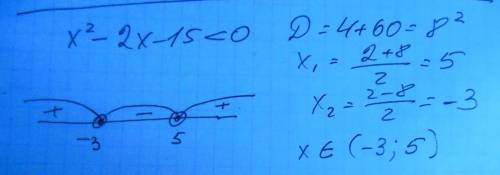 x² - 2x - 15 < 0
D = 4 + 60 = 8²
x₁ = (2+8)/2 = 5
x₂ = (2-8)/2 = -3
x ∈ (-3; 5)
+ - +
-3 5